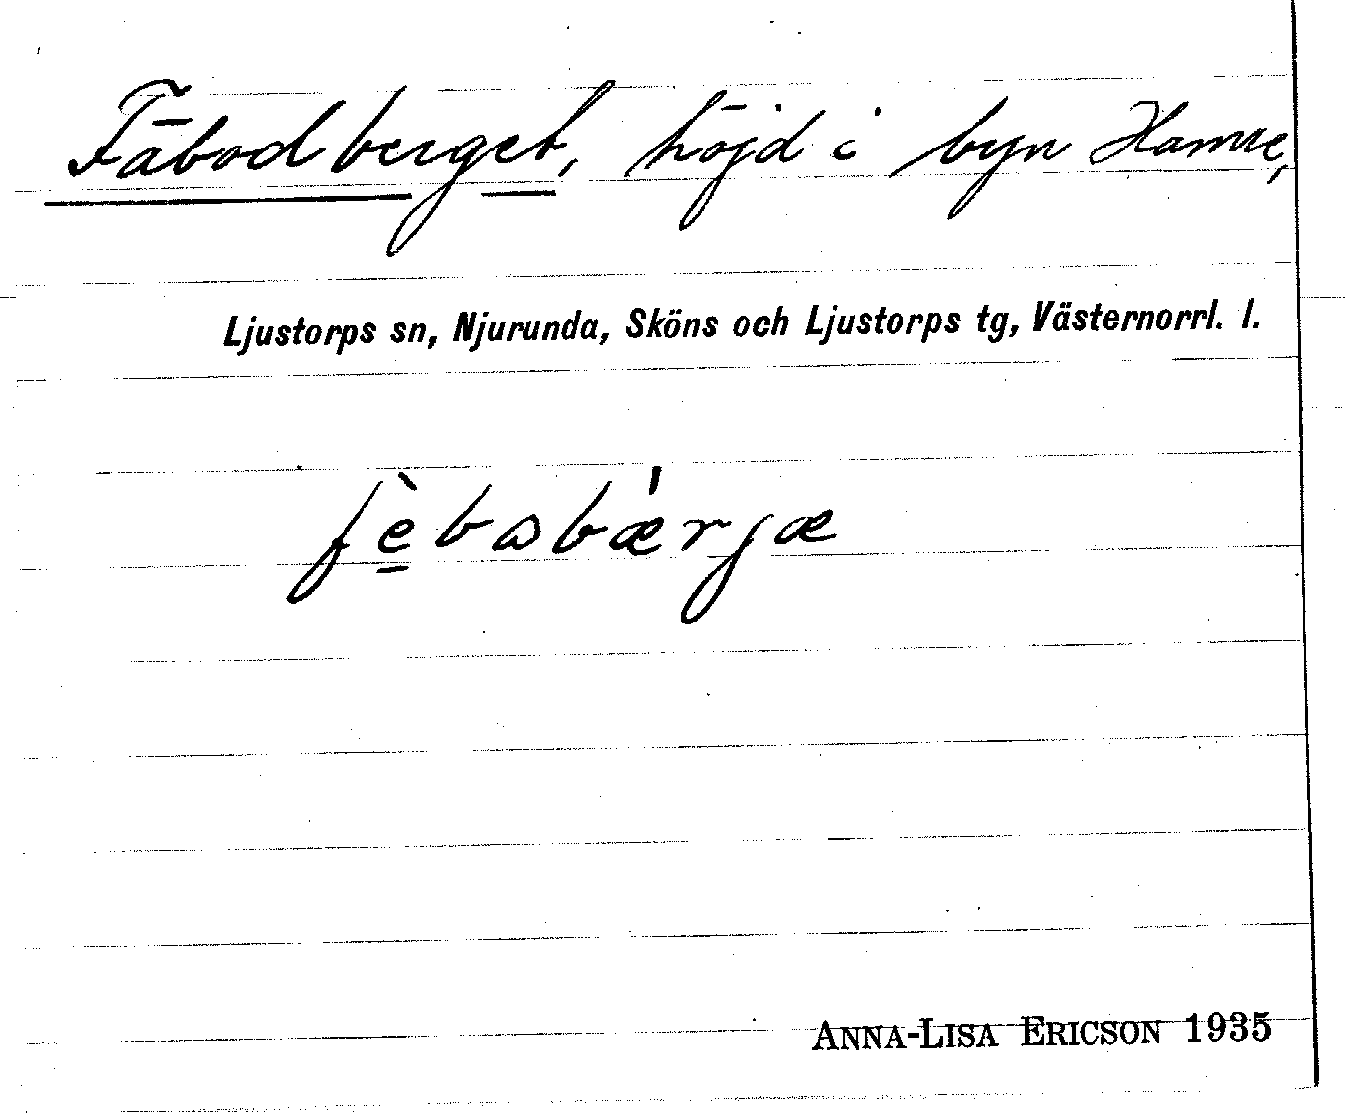 Fäbodberget, höjd i byn Hamre,
Ljustorps sn, Njurunda, Sköns och Ljustorps tg, Västernorrl. l.
fè̠bɷbǽrjæ
ANNA-LISA ERICSON 1935